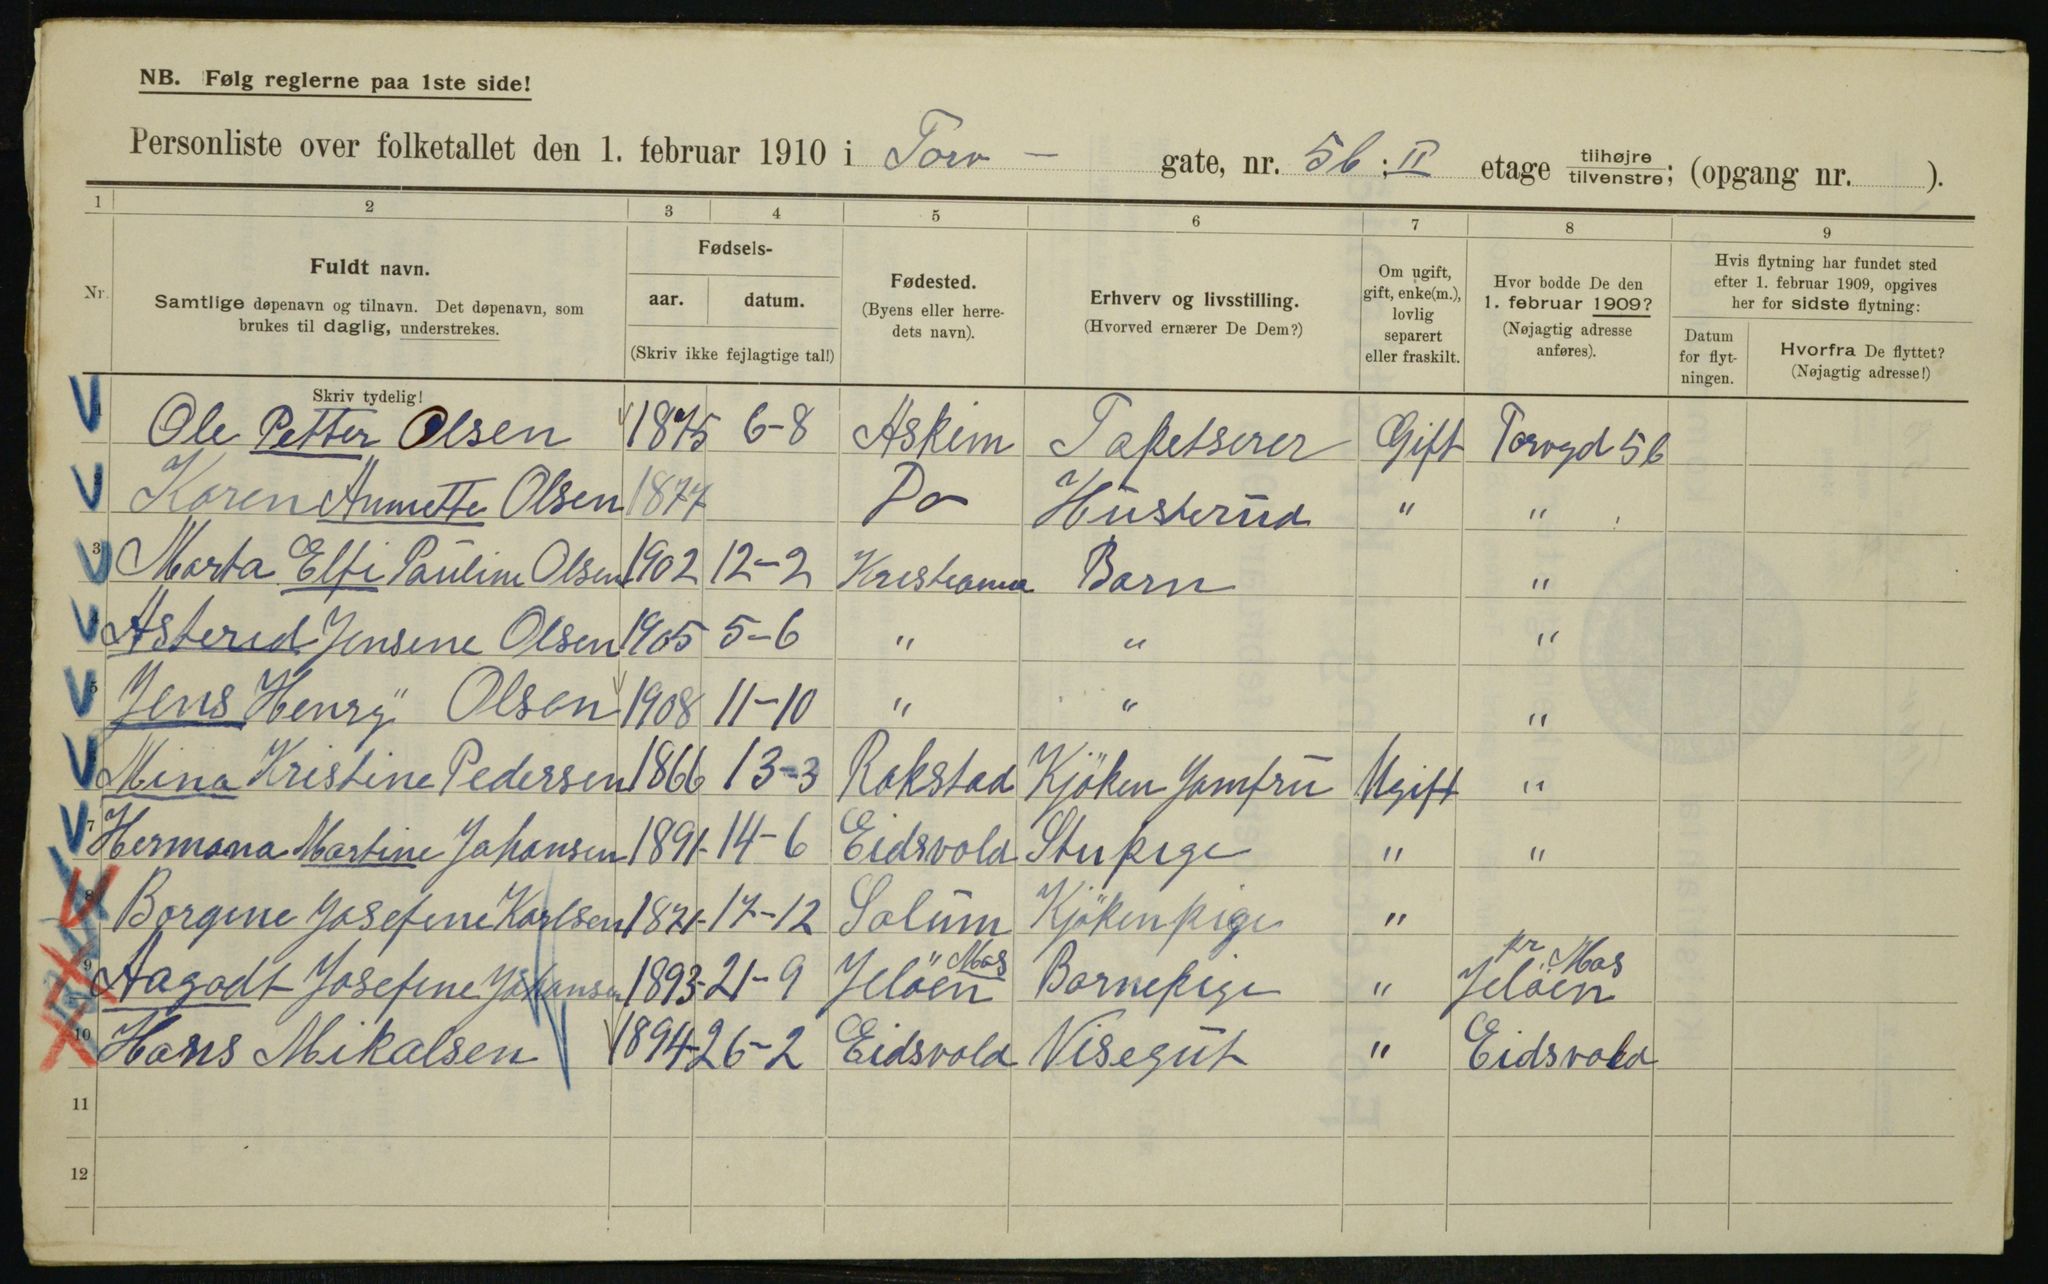 NB. Følg reglerne paa 1ste side!
Personliste over folketallet den 1. februar 1910 i Torv - gate, nr. 5b : II etage tilhøjre tilvenstre; (opgang nr. ).
1 2 3 4 5 6 7 8 9
Nr.
Fuldt navn.
Samtlige døpenavn og tilnavn. Det døpenavn, som
brukes til daglig, understrekes.
Skriv tydelig!
Fødsels-
aar. datum.
(Skriv ikke fejlagtige tal!)
Fødested.
(Byens eller herre-
dets navn).
Erhverv og livsstilling.
(Hvorved ernærer De Dem?)
Om ugift,
gift, enke(m.),
lovlig
separert
eller fraskilt.
Hvor bodde De den
1. februar 1909?
(Nøjagtig adresse
anføres).
Hvis flytning har fundet sted
efter 1. februar 1909, opgives
her for sidste flytning:
Datum
for flyt-
ningen.
Hvorfra De flyttet?
(Nøjagtig adresse!)
Ole Petter Olsen 1875 6-8 Askim Tapetserer Gift Torvgd 5b
Karen Annette Olsen 1877 Do Hustrud " "
3 Marta Elfi Pauline Olsen 1902 12-2 Kristiania Barn "
Asterid Jensene Olsen 1905 5-6 " " "
5 Jens Henry Olsen 1908 11-10 " " "
Mina Kristine Pedersen 1866 13-3 Rakstad Kjöken Jomfru Ugift "
7 Hermana Martine Johansen 1891 14-6 Eidsvold Stupige " "
8 Borgine Josefine Karlsen 1871 17-12 Solum Kjökenpige "
9 Aagodt Josefine Johansen 1893 21-9 Jelöen Mos Barnepige " Jelöen pr. Mos
10 Hans Mikalsen 1894 26-2 Eidsvold Visegut " Eidsvold
11
12